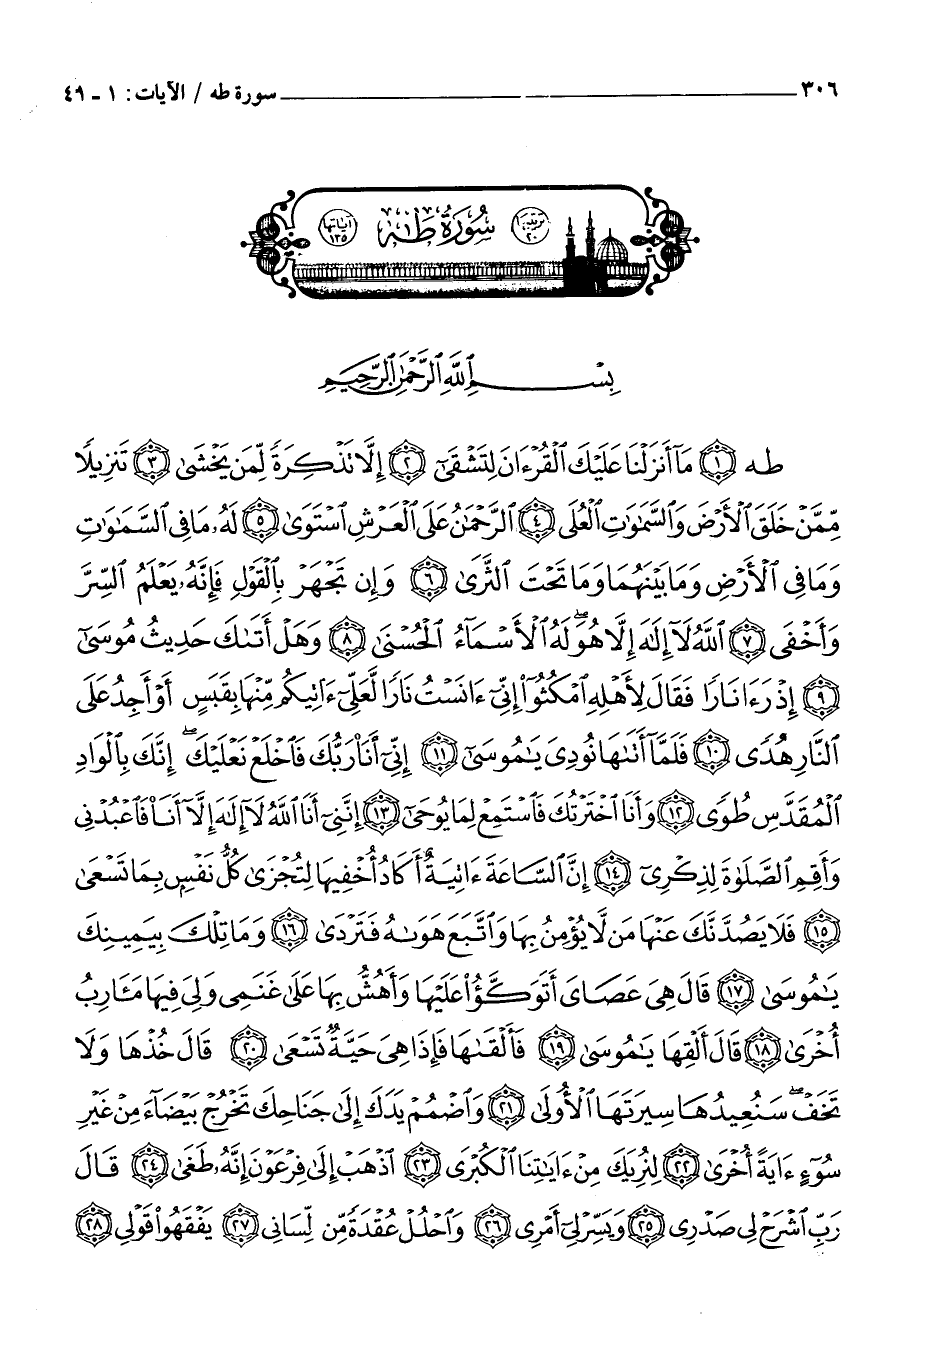 ٣٠٦ سورة طه / الآيات: ١ - ٤٩
ترتيبها ٢٠ سُورَةُ طٰهٰ آياتها ١٣٥
بِسْمِ ٱللَّهِ ٱلرَّحْمَٰنِ ٱلرَّحِيمِ
طه ١ مَآ أَنزَلْنَا عَلَيْكَ ٱلْقُرْءَانَ لِتَشْقَىٰٓ ٢ إِلَّا تَذْكِرَةً لِّمَن يَخْشَىٰ ٣ تَنزِيلًا
مِّمَّنْ خَلَقَ ٱلْأَرْضَ وَٱلسَّمَٰوَٰتِ ٱلْعُلَى ٤ ٱلرَّحْمَٰنُ عَلَى ٱلْعَرْشِ ٱسْتَوَىٰ ٥ لَهُۥ مَا فِى ٱلسَّمَٰوَٰتِ
وَمَا فِى ٱلْأَرْضِ وَمَا بَيْنَهُمَا وَمَا تَحْتَ ٱلثَّرَىٰ ٦ وَإِن تَجْهَرْ بِٱلْقَوْلِ فَإِنَّهُۥ يَعْلَمُ ٱلسِّرَّ
وَأَخْفَى ٧ ٱللَّهُ لَآ إِلَٰهَ إِلَّا هُوَ ۖ لَهُ ٱلْأَسْمَآءُ ٱلْحُسْنَىٰ ٨ وَهَلْ أَتَىٰكَ حَدِيثُ مُوسَىٰٓ
٩ إِذْ رَءَا نَارًا فَقَالَ لِأَهْلِهِ ٱمْكُثُوٓا۟ إِنِّىٓ ءَانَسْتُ نَارًا لَّعَلِّىٓ ءَاتِيكُم مِّنْهَا بِقَبَسٍ أَوْ أَجِدُ عَلَى
ٱلنَّارِ هُدًى ١٠ فَلَمَّآ أَتَىٰهَا نُودِىَ يَٰمُوسَىٰٓ ١١ إِنِّىٓ أَنَا۠ رَبُّكَ فَٱخْلَعْ نَعْلَيْكَ ۖ إِنَّكَ بِٱلْوَادِ
ٱلْمُقَدَّسِ طُوًى ١٢ وَأَنَا ٱخْتَرْتُكَ فَٱسْتَمِعْ لِمَا يُوحَىٰٓ ١٣ إِنَّنِىٓ أَنَا ٱللَّهُ لَآ إِلَٰهَ إِلَّآ أَنَا۠ فَٱعْبُدْنِى
وَأَقِمِ ٱلصَّلَوٰةَ لِذِكْرِىٓ ١٤ إِنَّ ٱلسَّاعَةَ ءَاتِيَةٌ أَكَادُ أُخْفِيهَا لِتُجْزَىٰ كُلُّ نَفْسٍۭ بِمَا تَسْعَىٰ
١٥ فَلَا يَصُدَّنَّكَ عَنْهَا مَن لَّا يُؤْمِنُ بِهَا وَٱتَّبَعَ هَوَىٰهُ فَتَرْدَىٰ ١٦ وَمَا تِلْكَ بِيَمِينِكَ
يَٰمُوسَىٰ ١٧ قَالَ هِىَ عَصَاىَ أَتَوَكَّؤُا۟ عَلَيْهَا وَأَهُشُّ بِهَا عَلَىٰ غَنَمِى وَلِىَ فِيهَا مَـَٔارِبُ
أُخْرَىٰ ١٨ قَالَ أَلْقِهَا يَٰمُوسَىٰ ١٩ فَأَلْقَىٰهَا فَإِذَا هِىَ حَيَّةٌ تَسْعَىٰ ٢٠ قَالَ خُذْهَا وَلَا
تَخَفْ ۖ سَنُعِيدُهَا سِيرَتَهَا ٱلْأُولَىٰ ٢١ وَٱضْمُمْ يَدَكَ إِلَىٰ جَنَاحِكَ تَخْرُجْ بَيْضَآءَ مِنْ غَيْرِ
سُوٓءٍ ءَايَةً أُخْرَىٰ ٢٢ لِنُرِيَكَ مِنْ ءَايَٰتِنَا ٱلْكُبْرَى ٢٣ ٱذْهَبْ إِلَىٰ فِرْعَوْنَ إِنَّهُۥ طَغَىٰ ٢٤ قَالَ
رَبِّ ٱشْرَحْ لِى صَدْرِى ٢٥ وَيَسِّرْ لِىٓ أَمْرِى ٢٦ وَٱحْلُلْ عُقْدَةً مِّن لِّسَانِى ٢٧ يَفْقَهُوا۟ قَوْلِى ٢٨